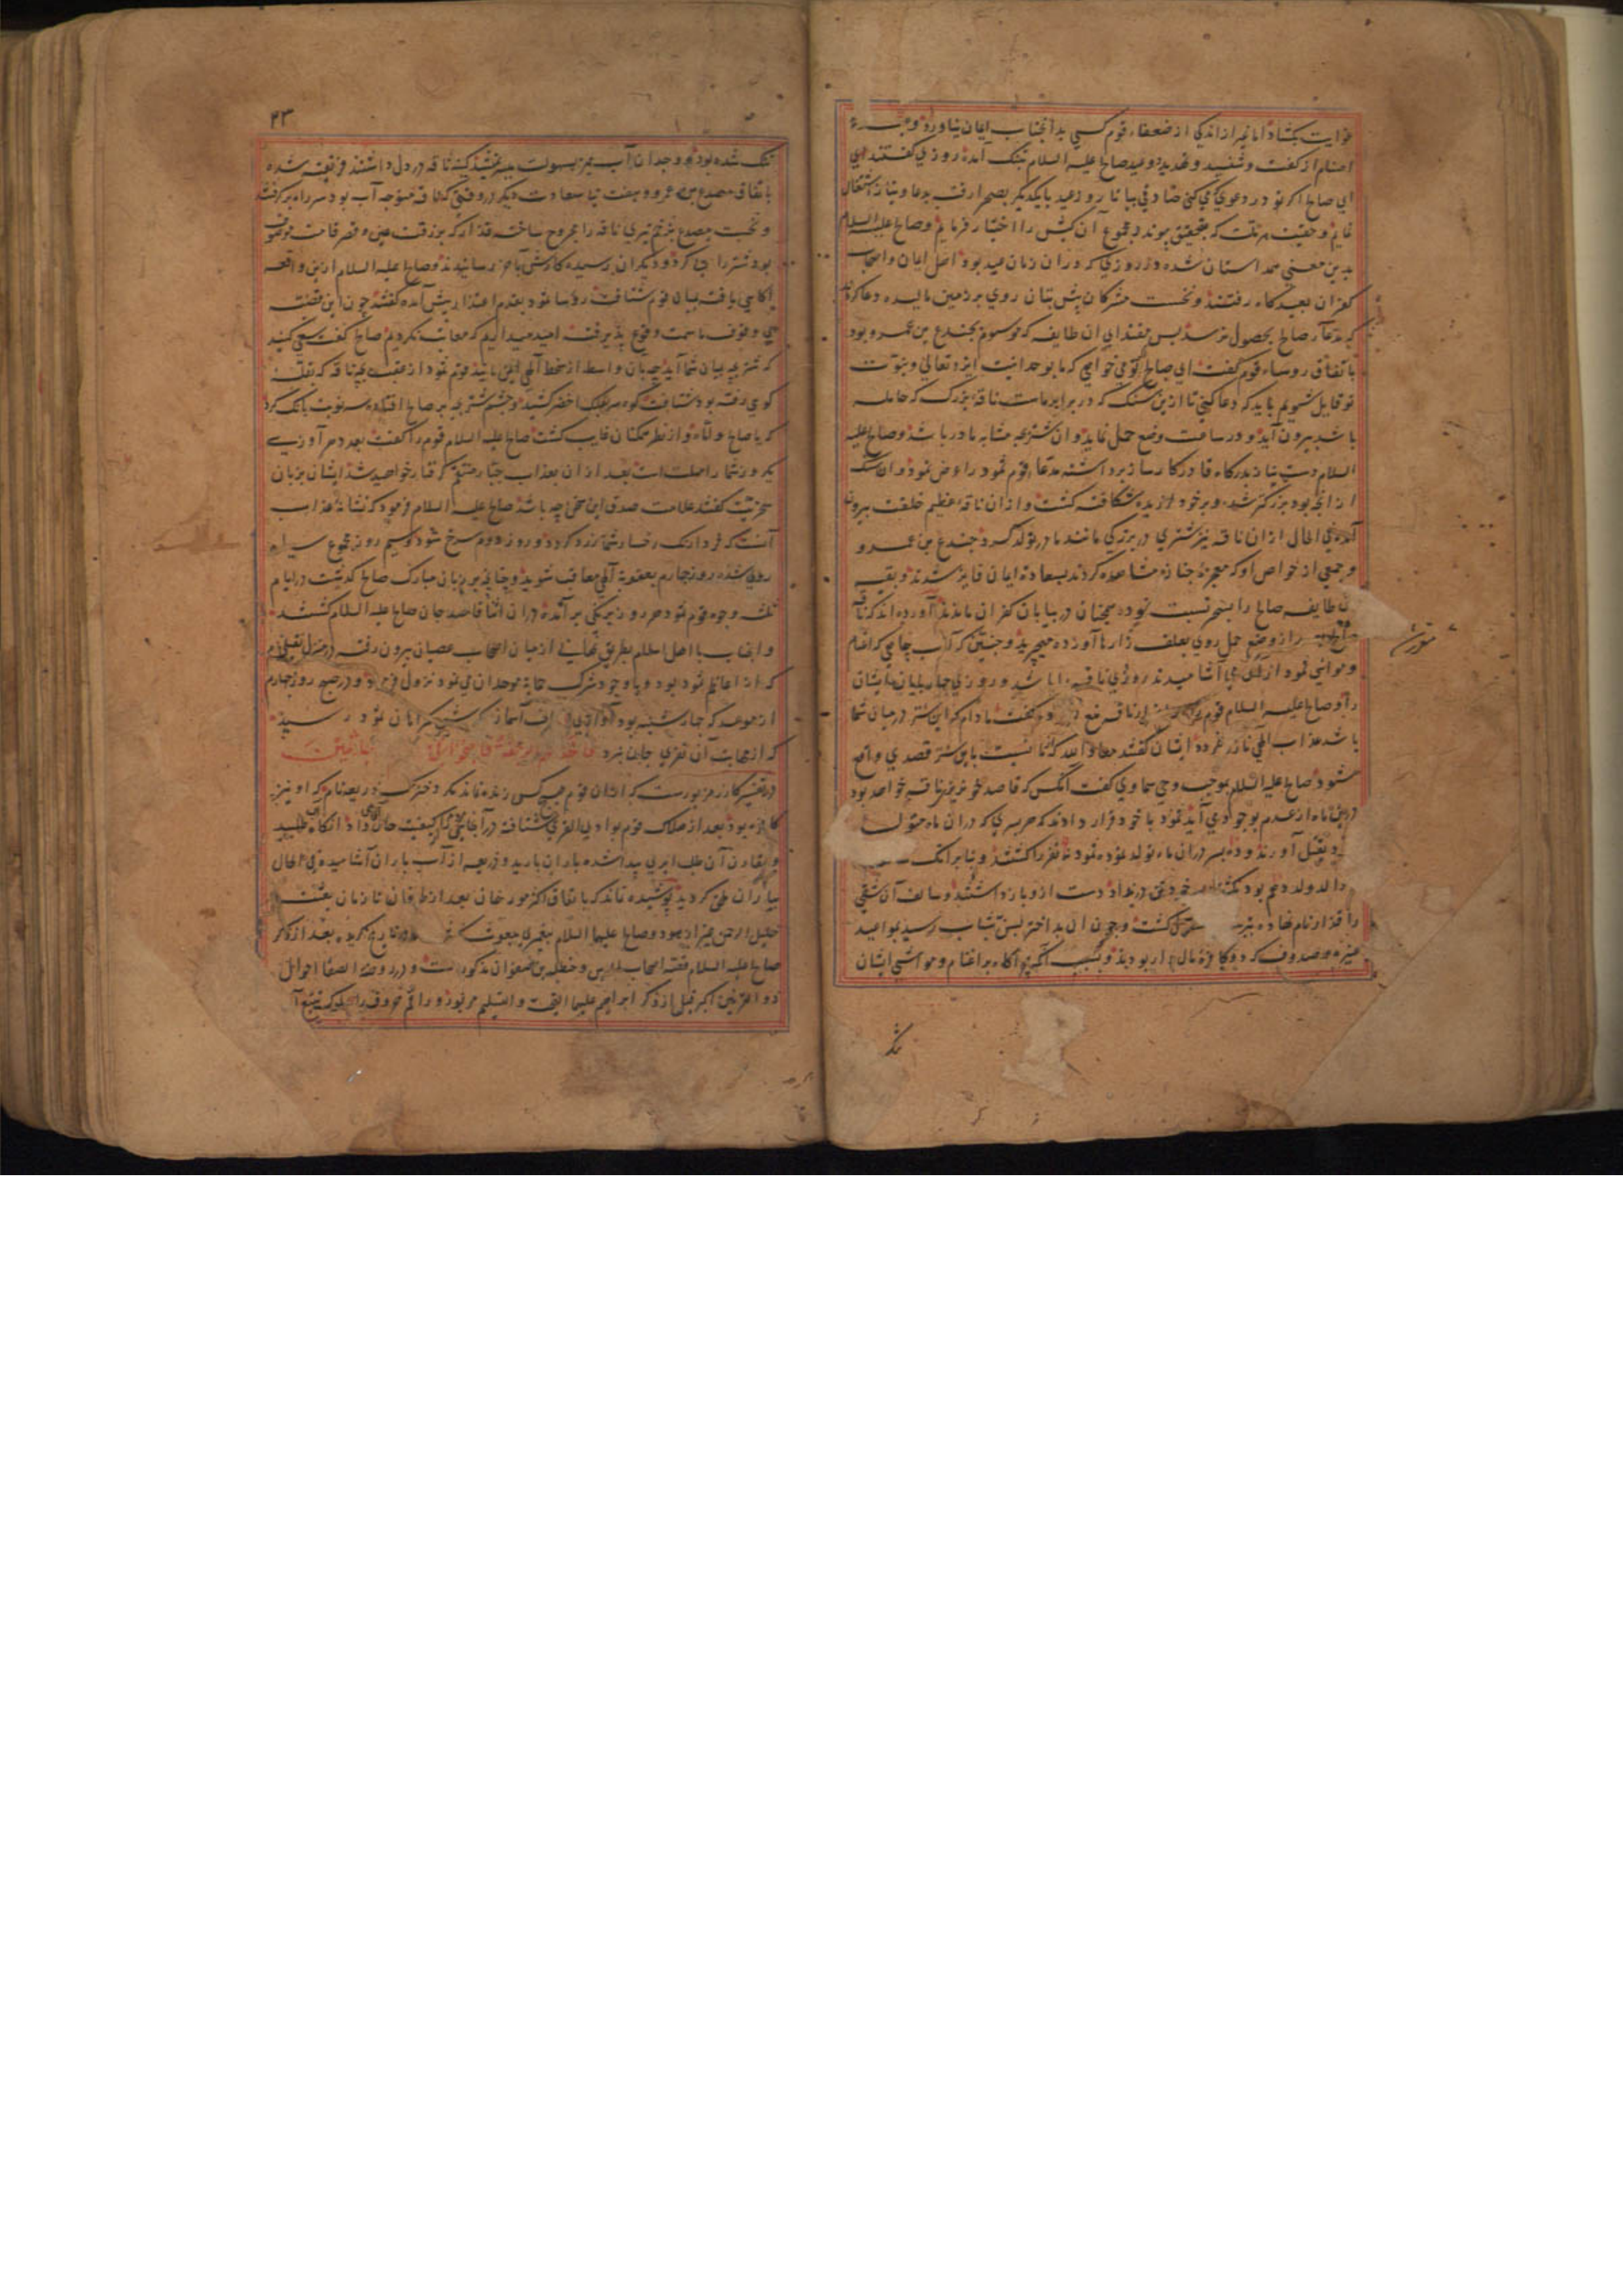 غوایت بگشاد اما غیر از اندکی از ضعفاء قوم کسی بدانجناب ایمان نیاورد و
اصنام از گفت و شنید و تهدید و وعید صالح علیه السلام بتنک آمده روزی گفتند ای
ای صالح اکر تو در دعوی که می کنی صادقی بیا تا روز عید با یکدیکر بصحرا رفته بدعا و نیاز اشتغال
نمایم و حقیت هر ملت که بتحقیق پیوندد مجموع آن کیش را اختیار فرمایم و صالح علیه السلام
بدین معنی همداستان شده در روزی که در ان زمان عید بود اهل ایمان و اصحاب
کفران بعیدکاه رفتند و نخست مشرکان پیش بتان روی بر زمین مالیده دعا کردند
که مدعاء صالح بحصول نرسد پس مقتدای ان طایفه که موسوم بجندع بن عمرو بود
باتفاق روساء قوم گفت ای صالح تو می خواهی که ما بوحدانیت ایزد تعالی و نبوت
تو قایل شویم باید که دعا کنی تا ازین سنک که در برابر ماست ناقه بزرک که حامله
باشد بیرون آید و در ساعت وضع حمل نماید و ان شتر بچه مشابه مادر باشد و صالح علیه
السلام دست نیاز بدرکاه قادر کارساز برداشته مدعاء قوم ثمود را عرض نمود و ان سنک
از انچه بود بزرکتر شد و بر خود لرزیده شکافته کشت و از ان ناقه عظیم خلقت بیرون
آمد فی الحال از ان ناقه نیز شتری در بزرکی مانند مادر تولد کرد جندع بن عمرو
و جمعی از خواص او که معجزه چنان مشاهده کردند بسعادت ایمان فایز شدند و بقیه
ان طایفه صالح را بسحر نسبت نموده همچنان در بیابان کفران بماندند آورده اند که ناقه
صالح بعد از وضع حمل روی بعلف زارها آورده میچرید و چنین که آب چاهی که اغنام
و مواشی ثمود از ان می آشامیدند روزی ناقه را باشد و روزی چهارپایان ایشان
را و صالح علیه السلام قوم را از ناقه منع و گفت مادام که این شتر در میان شما
باشد عذاب الهی نازل نکردد ایشان گفتند معاذ الله که ما نسبت باین شتر قصدی واقع
شود صالح علیه السلام بموجب وحی سماوی گفت آنکس که قاصد خونریز ناقه خواهد بود
درین ماه از عدم بوجود می آید ثمود با خود قرار دادند که هر پسری که در ان ماه متولد
بقتل آورند و ده پسر در ان ماه تولد نموده ثمود نه نفر را کشتند و بنابر انک
والد ولد دهم بود بکشتن رضا نداد دست ازو باز داشتند و سالف آن شقی
را قذار نام نهاده کشت و چون ان بد اختر بسن شباب رسید بمواعید
عنیزه و صدوف که دو کافره مالدار بودند و بسبب انکه بر اغنام و مواشی ایشان
تنک
۴۳
تنک شده بود و وجدان آب بسهولت میسر نمیشد کینه ناقه در دل داشتند فریفته شده
باتفاق مصدع بن عمرو و هفت بی سعادت دیکر در وقتی که ناقه متوجه آب بود سر راه برگرفت
و نخست مصدع بزخم تیری ناقه را مجروح ساخته قذار که بزرقت عین و قصر قامت موصوف
بود شتر را پی کرد و دیکران رسیده کارش بآخر رسانیدند و صالح علیه السلام ازین واقعه
آکاهی یافته بمیان قوم شتافت روساء ثمود بقدم اعتذار پیش آمده گفتند چون این قضیه
بی وقوف ما سمت وقوع پذیرفت امید میداریم که معاتب نکردیم صالح گفت سعی کنید
که شتر بچه بمیان شما آید چه بان واسطه از سخط الهی ایمن مانید قوم ثمود از عقب بچه ناقه که بقله
کوهی رفته بود شتافتند کوه سر بفلک اخضر کشید و چشم شتر بچه بر صالح افتاده سه نوبت بانک کرد
که یا صالح وا اماه و از نظر همکنان غایب کشت صالح علیه السلام قوم را گفت بعدد هر آوازی
یکروز شما را مهلت است بعد از ان بعذاب جبار منتقم گرفتار خواهید شد ایشان بر زبان
سخریت گفتند علامت صدق این سخن چه باشد صالح علیه السلام فرمود که نشانه عذاب
آنست که فردا رنک رخسار شما زرد گردد و روز دوم سرخ شود و سیم روز مجموع سیاه
روی شده روز چهارم بعقوبة الهی معاقب شوید و چنانچه بر زبان مبارک صالح گذشت در ایام
ثلثه وجوه قوم ثمود هر روز برنکی برآمده در ان اثنا قاصد جان صالح علیه السلام گشتند
و انجناب با اهل اسلام بطریق نهانی از میان اصحاب عصیان بیرون رفته در منزل نفیل نام
که از اعاظم ثمود بود و باوجود شرک حمایة موحدان می نمود نزول فرمود و در صبح روز چهارم
از موعد که چهارشنبه بود آوازی از طرف آسمان بکوش بی ایمان ثمود رسید
که از مهابت آن نفری جان نبرد فاخذتهم الرجفة فاصبحوا فی دارهم جاثمین
در تفسیر کازر مزبورست که از ان قوم هیچ کس زنده نماند مکر دخترک ذریعه نام که او نیز
کافره بود بعد از هلاک قوم بوادی القری شتافته در آنجا کیفیت حال داد آنکاه آب طلبید
و مقارن آن طلب ابری پیدا شده باران بارید و ذریعه از آب باران آشامیده فی الحال
بیاران ملحق کردید پوشیده نماند که باتفاق اکثر مورخان بعد از طوفان تا زمان بعثت
خلیل الرحمن بغیر از هود و صالح علیهما السلام پیغمبری مبعوث نکشته و در تاریخ کزیده بعد از ذکر
صالح علیه السلام قصه اصحاب الرس و حنظلة بن صفوان مذکورست و در روضة الصفا احوال
ذو القرنین اکبر قبل از ذکر ابراهیم علیهما التحیة و التسلیم مزبور و راقم حروف را سلیک تتبع آ